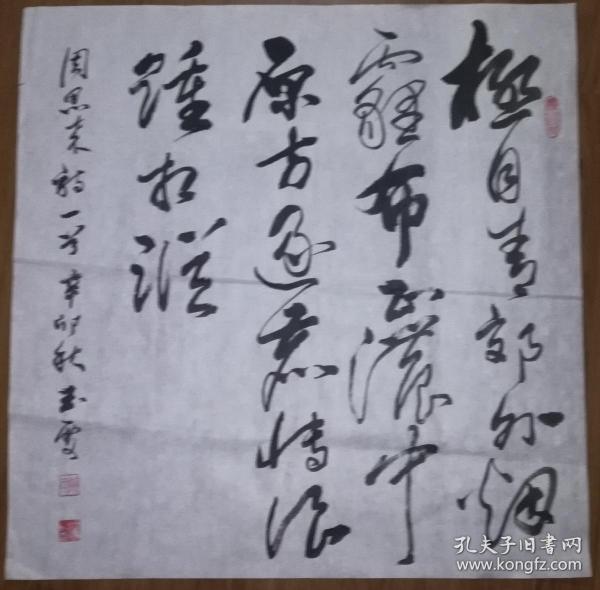 極目青郊外烟
霾布正濃中
原方逐鹿博浪
踵相蹤
周恩来詩一首 辛卯秋
孔夫子旧書网
www.kongfz.com